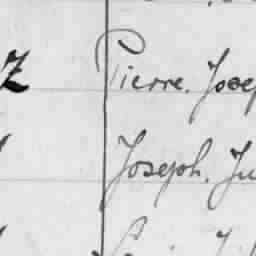 Z Pierre. Josep
Joseph. Ju